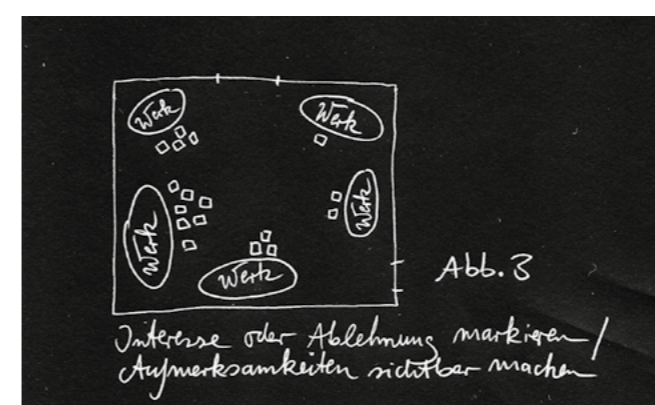 Werk
Werk
Werk
Werk
Werk
Abb. 3
Interesse oder Ablehnung markieren /
Aufmerksamkeiten sichtbar machen